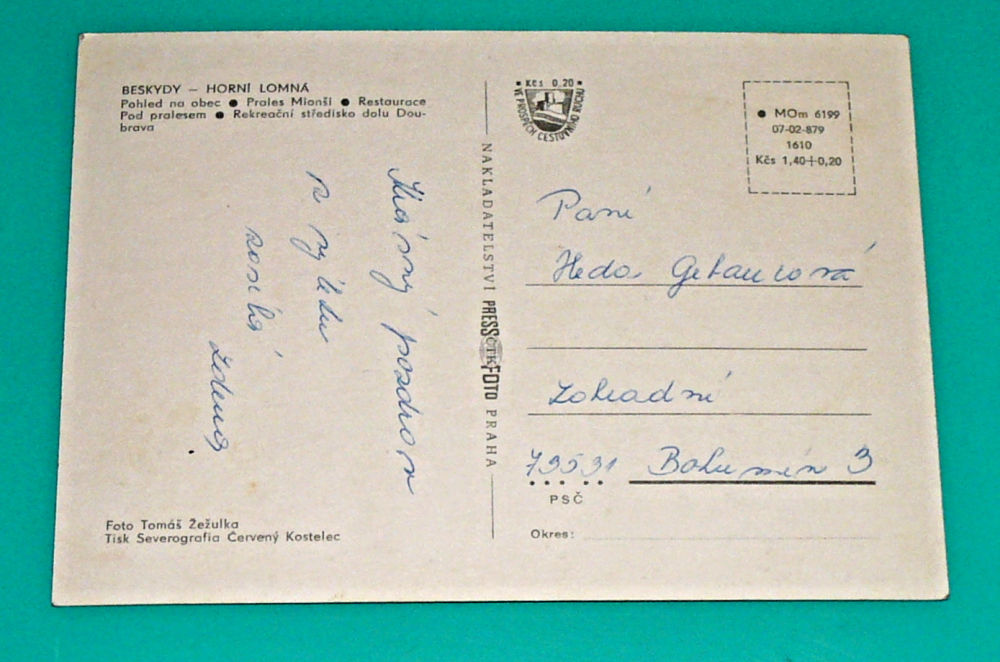 BESKYDY – HORNÍ LOMNÁ
Pohled na obec ● Prales Mionší ● Restaurace
Pod pralesem ● Rekreační středisko dolu Dou-
brava
Krásný pozdrav
z výletu
zasílá
Zdena
Foto Tomáš Žežulka
Tisk Severografia Červený Kostelec
NAKLADATELSTVÍ PRESSFOTO PRAHA
ČTK
• Kčs 0,20 •
VE PROSPĚCH CESTOVNÍHO RUCHU
● MOm 6199
07-02-879
1610
Kčs 1,40+0,20
Paní
Heda
Zahradní
73531 Bohumín 3
PSČ
Okres: